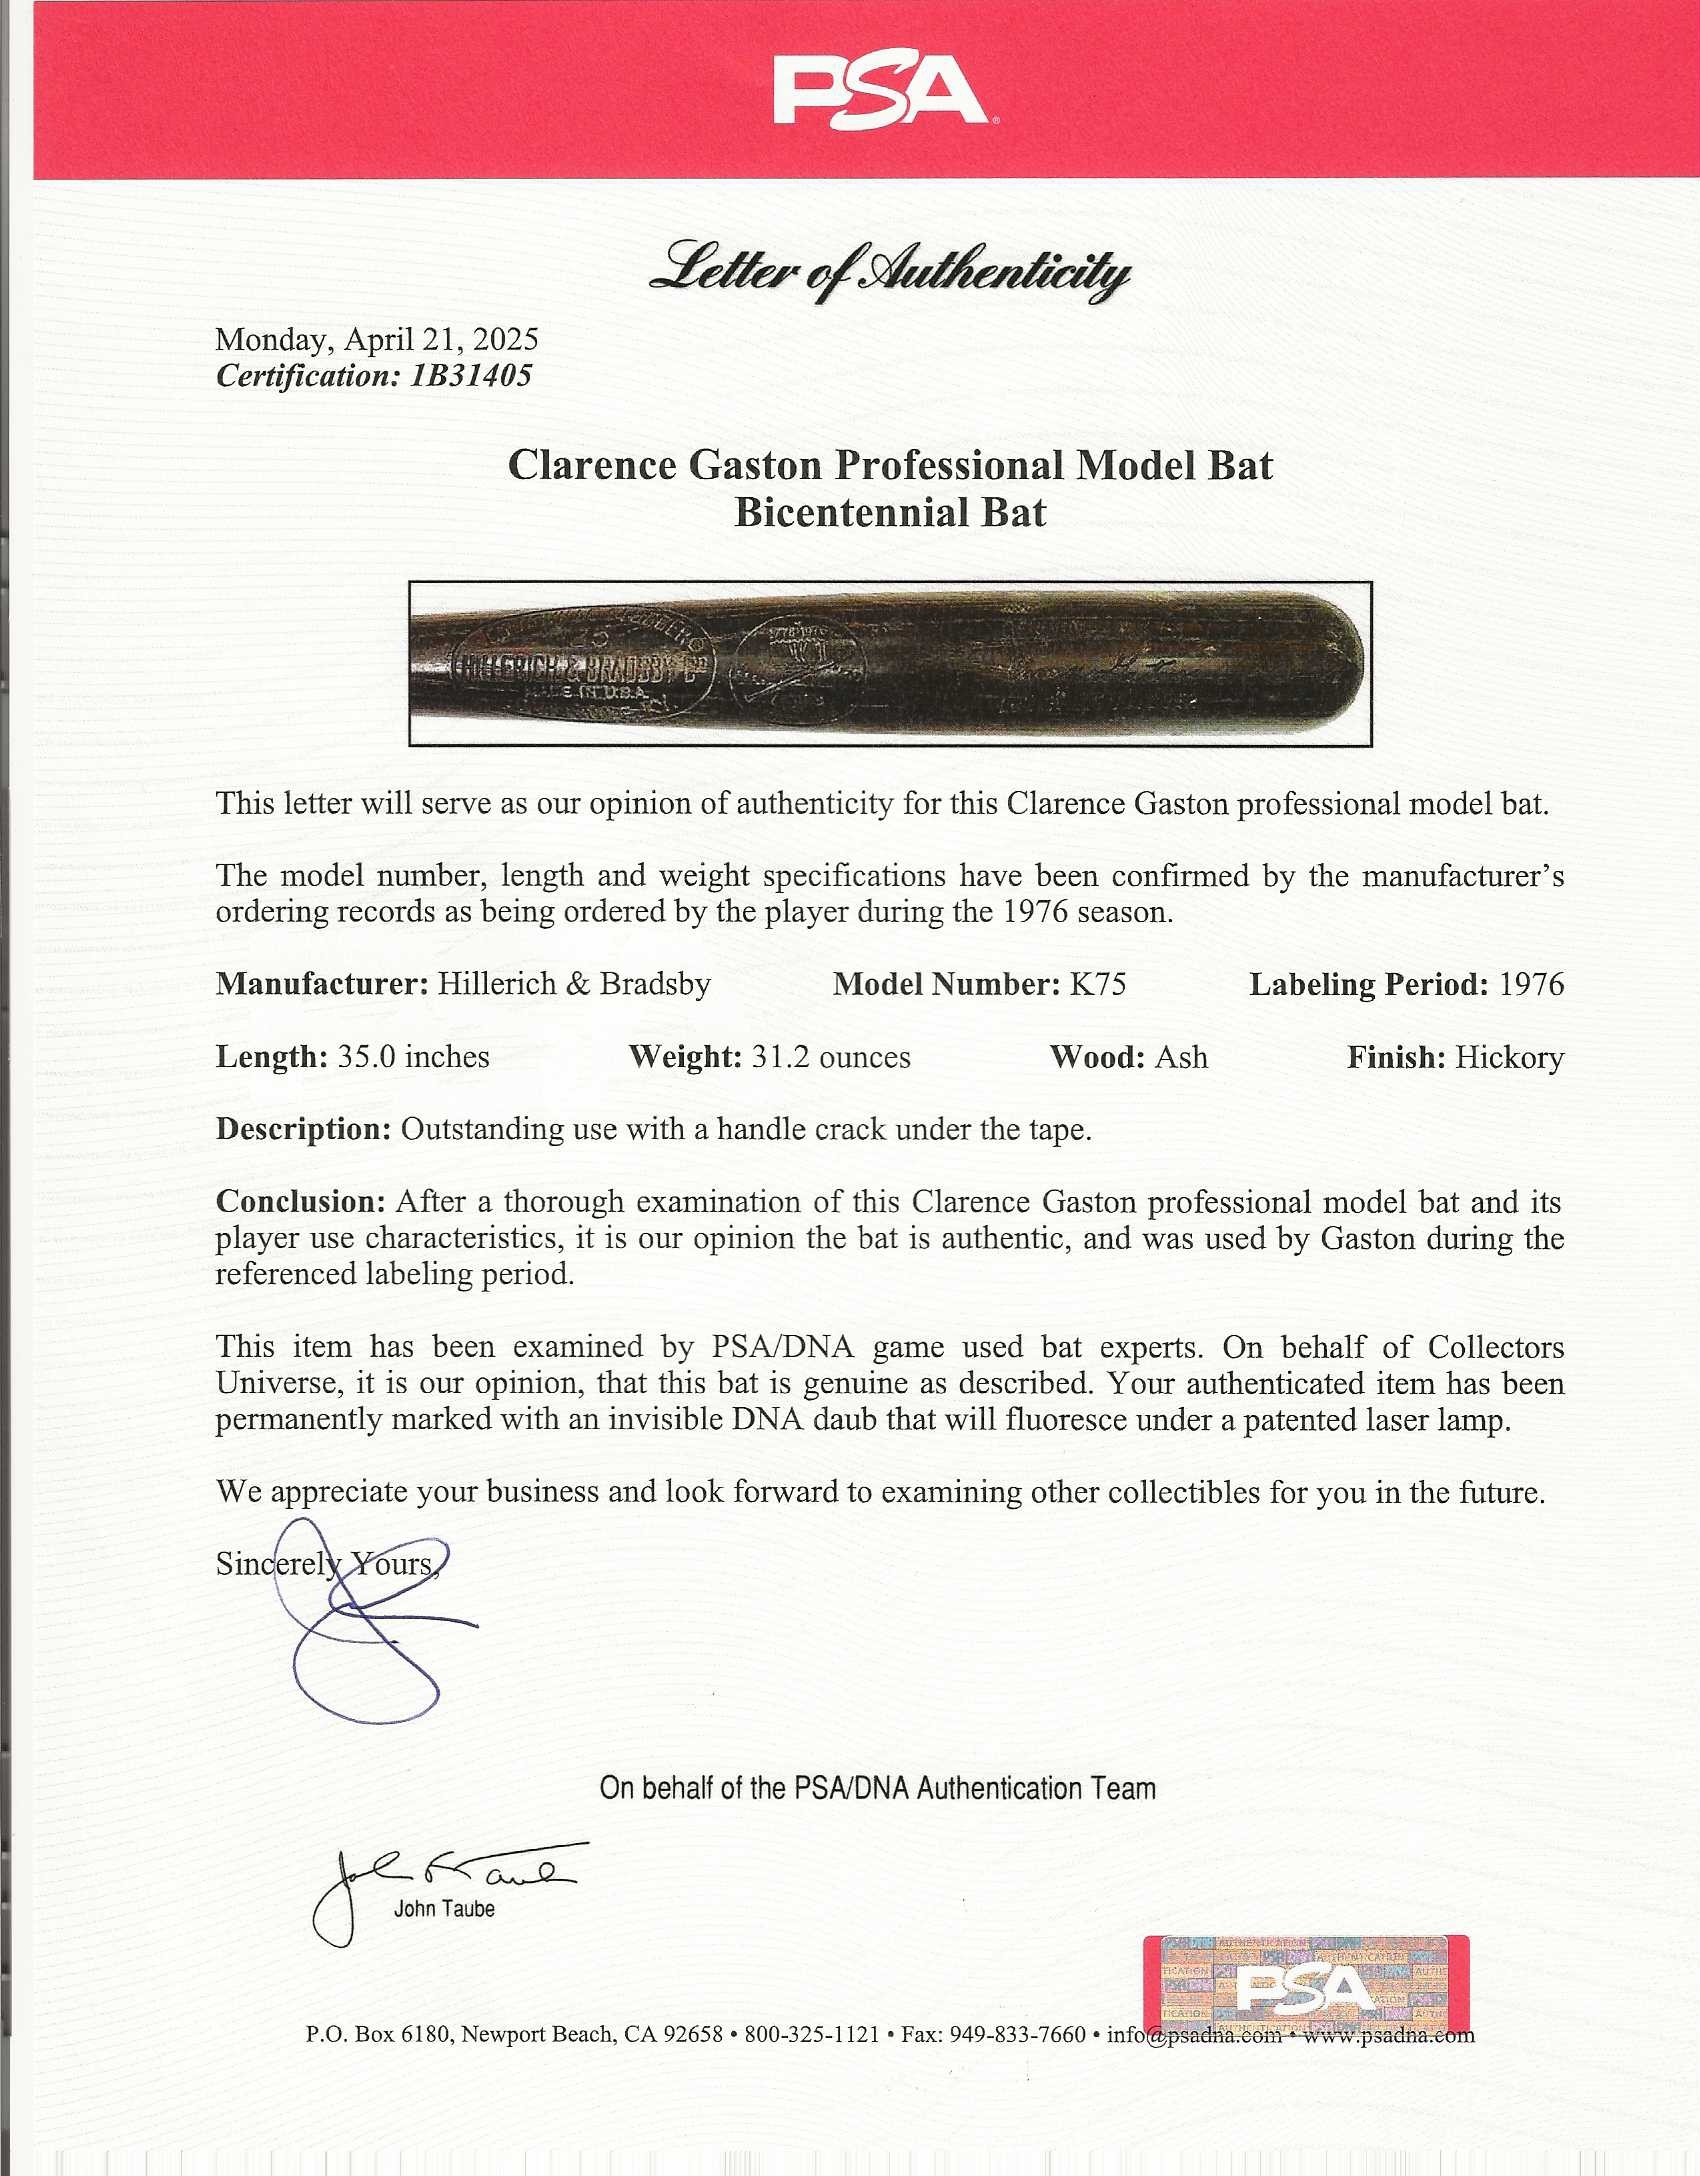 PSA
Letter of Authenticity
Monday, April 21, 2025
Certification: 1B31405
Clarence Gaston Professional Model Bat
Bicentennial Bat
HILLERICH & BRADSBY Cº
MADE IN U.S.A.
This letter will serve as our opinion of authenticity for this Clarence Gaston professional model bat.
The model number, length and weight specifications have been confirmed by the manufacturer’s
ordering records as being ordered by the player during the 1976 season.
Manufacturer: Hillerich & Bradsby Model Number: K75 Labeling Period: 1976
Length: 35.0 inches Weight: 31.2 ounces Wood: Ash Finish: Hickory
Description: Outstanding use with a handle crack under the tape.
Conclusion: After a thorough examination of this Clarence Gaston professional model bat and its
player use characteristics, it is our opinion the bat is authentic, and was used by Gaston during the
referenced labeling period.
This item has been examined by PSA/DNA game used bat experts. On behalf of Collectors
Universe, it is our opinion, that this bat is genuine as described. Your authenticated item has been
permanently marked with an invisible DNA daub that will fluoresce under a patented laser lamp.
We appreciate your business and look forward to examining other collectibles for you in the future.
Sincerely Yours,
On behalf of the PSA/DNA Authentication Team
John Taube
PSA
P.O. Box 6180, Newport Beach, CA 92658 • 800-325-1121 • Fax: 949-833-7660 • info@psadna.com • www.psadna.com